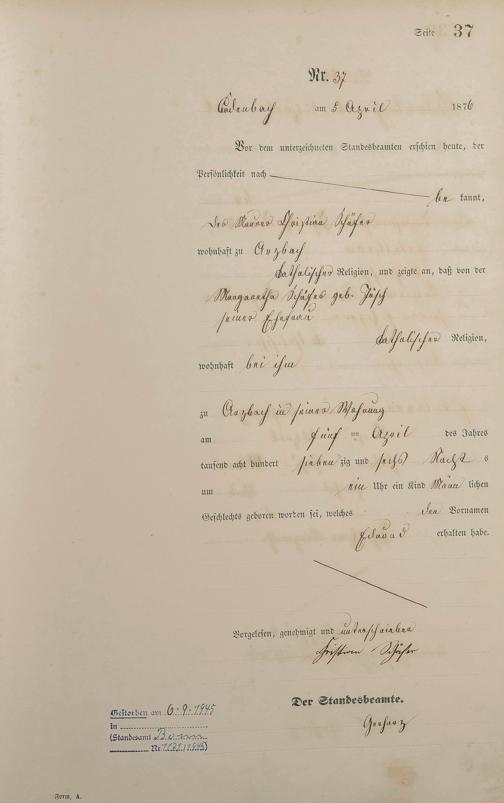 Seite 37
Nr. 37
Cadenbach am 5 April 1876
Vor dem unterzeichneten Standesbeamten erschien heute, der
Persönlichkeit nach
be kannt,
der Maurer Christian Schäfer
wohnhaft zu Arzbach
katholischer Religion, und zeigte an, daß von der
Margaretha Schäfer geb. Jösch
seiner Ehefrau
katholischer Religion,
wohnhaft bei ihm
zu Arzbach in seiner Wohnung
am fünf ten April des Jahres
tausend acht hundert sieben zig und sechs Nacht s
um ein Uhr ein Kind Männ lichen
Geschlechts geboren worden sei, welches den Vornamen
Eduard erhalten habe.
Vorgelesen, genehmigt und unterschrieben
Christian Schäfer
Der Standesbeamte.
Gestorben am 6.9.1945
in
(Standesamt Bonn
Nr 1121/1945)
Form. A.